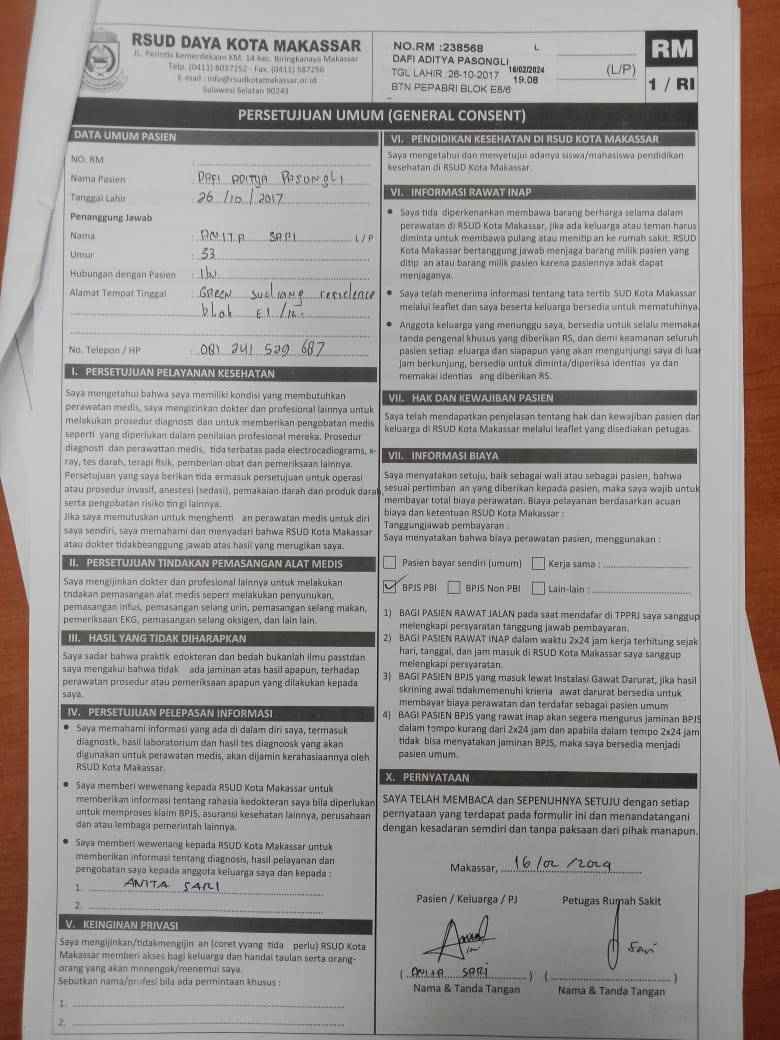 RSUD DAYA KOTA MAKASSAR
JL. Perintis Kemerdekaan KM. 14 Kec. Biringkanaya Makassar
Telp. (0411) 8037252 - Fax. (0411) 587256
E-mail : info@rsudkotamakassar.or.id
Sulawesi Selatan 90241
NO.RM :238568 L
DAFI ADITYA PASONGLI
TGL LAHIR :26-10-2017 16/02/2024
19.08
BTN PEPABRI BLOK E8/6
(L/P)
RM
1 / RI
PERSETUJUAN UMUM (GENERAL CONSENT)
DATA UMUM PASIEN
NO. RM :
Nama Pasien : DAFI ADITYA PASONGLI
Tanggal Lahir : 26 / 10 / 2017
Penanggung Jawab
Nama : ANITA SARI L / P
Umur : 33
Hubungan dengan Pasien : Ibu
Alamat Tempat Tinggal : Green sudiang residence
blok E1 /12.
No. Telepon / HP : 081 241 529 687
I. PERSETUJUAN PELAYANAN KESEHATAN
Saya mengetahui bahwa saya memiliki kondisi yang membutuhkan
perawatan medis, saya mengizinkan dokter dan profesional lainnya untuk
melakukan prosedur diagnosti dan untuk memberikan pengobatan medis
seperti yang diperlukan dalam penilaian profesional mereka. Prosedur
diagnosti dan perawattan medis, tida terbatas pada electrocardiograms, x-
ray, tes darah, terapi fisik, pemberian obat dan pemeriksaan lainnya.
Persetujuan yang saya berikan tida ermasuk persetujuan untuk operasi
atau prosedur invasif, anestesi (sedasi), pemakaian darah dan produk darah,
serta pengobatan risiko tin gi lainnya.
Jika saya memutuskan untuk menghenti an perawatan medis untuk diri
saya sendiri, saya memahami dan menyadari bahwa RSUD Kota Makassar
atau dokter tidakbeanggung jawab atas hasil yang merugikan saya.
II. PERSETUJUAN TINDAKAN PEMASANGAN ALAT MEDIS
Saya mengijinkan dokter dan profesional lainnya untuk melakukan
tndakan pemasangan alat medis seperr melakukan penyunukan,
pemasangan infus, pemasangan selang urin, pemasangan selang makan,
pemeriksaan EKG, pemasangan selang oksigen, dan lain lain.
III. HASIL YANG TIDAK DIHARAPKAN
Saya sadar bahwa praktik edokteran dan bedah bukanlah ilmu passtdan
saya mengakui bahwa tidak ada jaminan atas hasil apapun, terhadap
perawatan prosedur atau pemeriksaan apapun yang dilakukan kepada
saya.
IV. PERSETUJUAN PELEPASAN INFORMASI
• Saya memahami informasi yang ada di dalam diri saya, termasuk
diagnostk, hasil laboratorium dan hasil tes diagnoosk yang akan
digunakan untuk perawatan medis, akan dijamin kerahasiaannya oleh
RSUD Kota Makassar.
• Saya memberi wewenang kepada RSUD Kota Makassar untuk
memberikan informasi tentang rahasia kedokteran saya bila diperlukan
untuk memproses klaim BPJS, asuransi kesehatan lainnya, perusahaan
dan atau lembaga pemerintah lainnya.
• Saya memberi wewenang kepada RSUD Kota Makassar untuk
memberikan informasi tentang diagnosis, hasil pelayanan dan
pengobatan saya kepada anggota keluarga saya dan kepada :
1. ANITA SARI
2.
V. KEINGINAN PRIVASI
Saya mengijinkan/tidakmengijin an (coret yyang tida perlu) RSUD Kota
Makassar memberi akses bagi keluarga dan handai taulan serta orang-
orang yang akan menengok/menemui saya.
Sebutkan nama/profesi bila ada permintaan khusus :
1.
2.
VI. PENDIDIKAN KESEHATAN DI RSUD KOTA MAKASSAR
Saya mengetahui dan menyetujui adanya siswa/mahasiswa pendidikan
kesehatan di RSUD Kota Makassar.
VI. INFORMASI RAWAT INAP
• Saya tida diperkenankan membawa barang berharga selama dalam
perawatan di RSUD Kota Makassar, jika ada keluarga atau teman harus
diminta untuk membawa pulang atau menitip an ke rumah sakit. RSUD
Kota Makassar bertanggung jawab menjaga barang milik pasien yang
ditip an atau barang milik pasien karena pasiennya adak dapat
menjaganya.
• Saya telah menerima informasi tentang tata tertib SUD Kota Makassar
melalui leaflet dan saya beserta keluarga bersedia untuk mematuhinya.
• Anggota keluarga yang menunggu saya, bersedia untuk selalu memakai
tanda pengenal khusus yang diberikan RS, dan demi keamanan seluruh
pasien setiap eluarga dan siapapun yang akan mengunjungi saya di luar
jam berkunjung, bersedia untuk diminta/diperiksa identias ya dan
memakai identias ang diberikan RS.
VII. HAK DAN KEWAJIBAN PASIEN
Saya telah mendapatkan penjelasan tentang hak dan kewajiban pasien dan
keluarga di RSUD Kota Makassar melalui leaflet yang disediakan petugas.
VII. INFORMASI BIAYA
Saya menyatakan setuju, baik sebagai wali atau sebagai pasien, bahwa
sesuai pertimban an yang diberikan kepada pasien, maka saya wajib untuk
membayar total biaya perawatan. Biaya pelayanan berdasarkan acuan
biaya dan ketentuan RSUD Kota Makassar :
Tanggungjawab pembayaran :
Saya menyatakan bahwa biaya perawatan pasien, menggunakan :
Pasien bayar sendiri (umum) Kerja sama :
BPJS PBI BPJS Non PBI Lain-lain :
1) BAGI PASIEN RAWAT JALAN pada saat mendafar di TPPRJ saya sanggup
melengkapi persyaratan tanggung jawab pembayaran.
2) BAGI PASIEN RAWAT INAP dalam waktu 2x24 jam kerja terhitung sejak
hari, tanggal, dan jam masuk di RSUD Kota Makassar saya sanggup
melengkapi persyaratan.
3) BAGI PASIEN BPJS yang masuk lewat Instalasi Gawat Darurat, jika hasil
skrining awal tidakmemenuhi krieria awat darurat bersedia untuk
membayar biaya perawatan dan terdafar sebagai pasien umum
4) BAGI PASIEN BPJS yang rawat inap akan segera mengurus jaminan BPJS
dalam tempo kurang dari 2x24 jam dan apabila dalam tempo 2x24 jam
tidak bisa menyatakan jaminan BPJS, maka saya bersedia menjadi
pasien umum.
X. PERNYATAAN
SAYA TELAH MEMBACA dan SEPENUHNYA SETUJU dengan setiap
pernyataan yang terdapat pada formulir ini dan menandatangani
dengan kesadaran semdiri dan tanpa paksaan dari pihak manapun.
Makassar, 16 /02 /2024
Pasien / Keluarga / PJ Petugas Rumah Sakit
Sari
( ANITA SARI ) ( )
Nama & Tanda Tangan Nama & Tanda Tangan